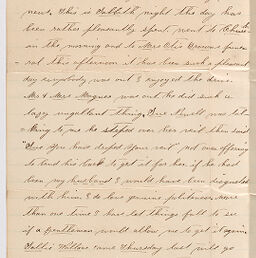 news. This is Sabbath night the day has
been rather pleasantly spent. went to Church
in the morning and to Mrs Otis Browns fune-
ral this afternoon it has been such a pleasant
day everybody was out & enjoyed the drive.
Mr & Mrs Magness was out he did such a
lazy impolitant thing, Sue was tal-
king to me she steped over her veil then said
"Sue you have droped your veil" not one offering
to bend his back to get it for her if he had
been my husband I would have been disgusted
with him I do love genuine politeness more
than one time I have let things fall to see
if a Gentleman would allow me to get it again
came Thursday last will go